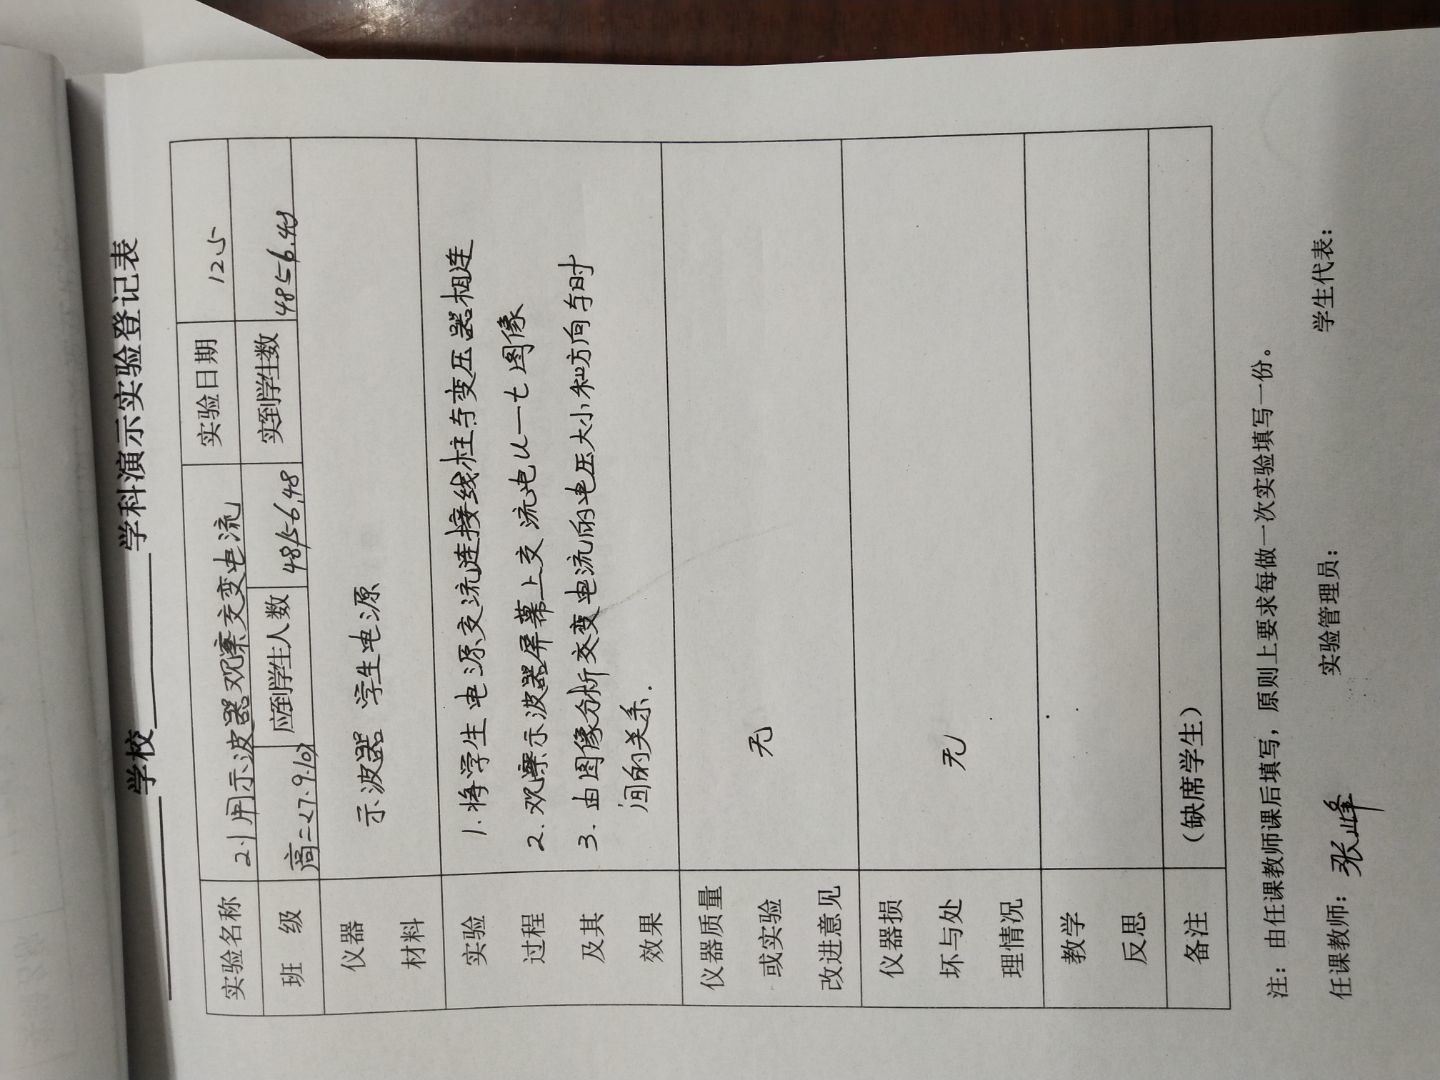 学校 学科演示实验登记表
实验名称 2.利用示波器观察交变电流 实验日期 12.5
班 级 高二<7.9.10> 应到学生人数 48,56,48 实到学生数 48 56.48
仪器 材料 示波器 学生电源
实验 过程 及其 效果
1.将学生电源交流连接线柱与变压器相连
2.观察示波器屏幕上交流电u—t图像
3.由图像分析交变电流的电压大小和方向与时
间的关系.
仪器质量 或实验 改进意见 无
仪器损 坏与处 理情况 无
教学 反思
备注 (缺席学生)
注：由任课教师课后填写，原则上要求每做一次实验填写一份。
任课教师：张峰 实验管理员： 学生代表：